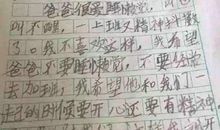 爸爸很爱睡懒觉,
叫不醒,一上班又精神抖擞
了。我不喜欢这样,我希望
爸爸不要睡懒觉,不要给
去加班,我希望他和我们一
起的时候要开心还要有精神